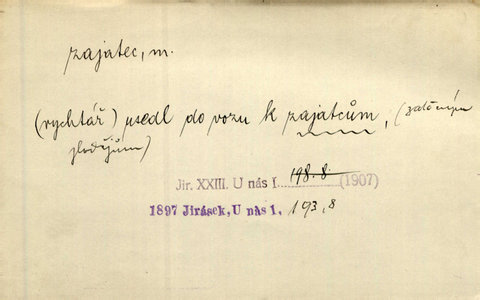 zajatec, m.
(rychtář) usedl do vozu k zajatcům, (zatčeným
zlodějům)
Jir. XXIII. U nás I. 198.8. (1907)
1897 Jirásek, U nás 1. 193,8